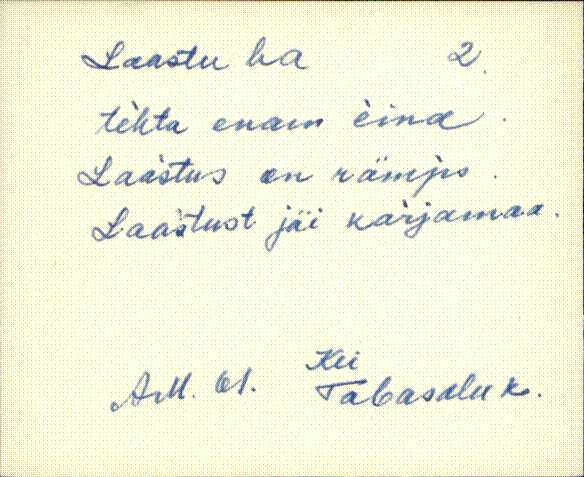 Laastu ha 2.
tèhta enam èina.
Laàstus on rämps.
Laàstust jäi kàrjamaa.
Kei
AM. 61. Tabasalu k.